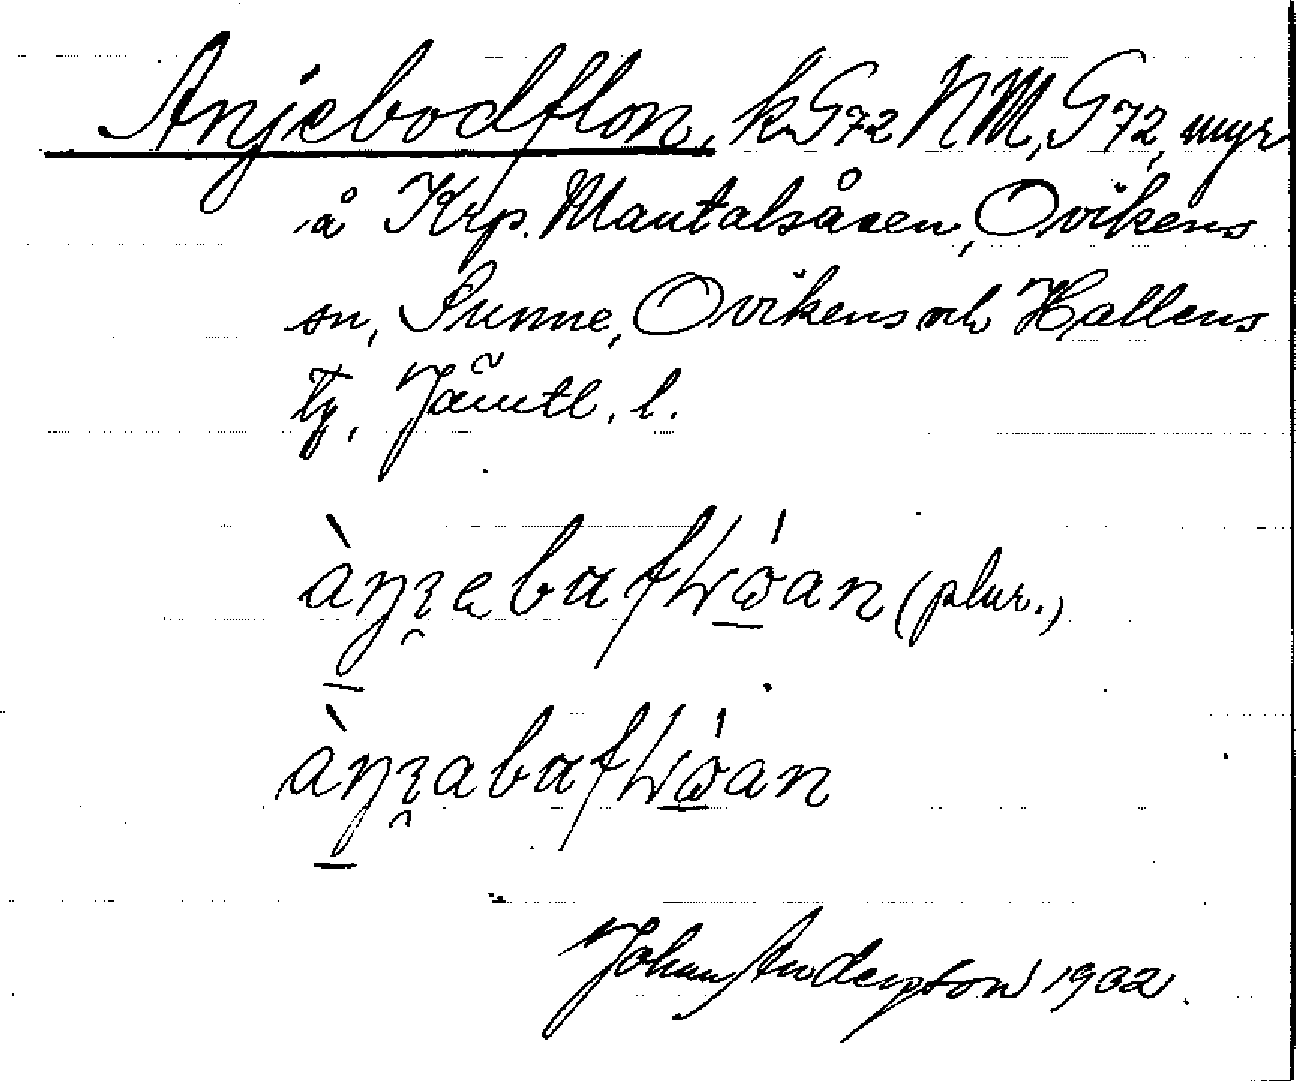 Anjebodflon, k G72 NM, G 72, myr
å Krp. Mantalsåsen, Ovikens
sn, Sunne, Ovikens och Hallens
tg, Jämtl. l.
(plur.)
Johan Anderson 1902